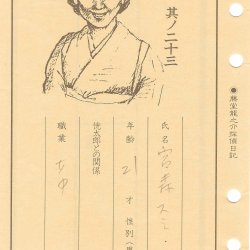 ●藤堂龍之介探偵日記
其ノ二十三
氏名 宮森スミ
年齢 21 才 性別(男
恍太郎との関係
職業 女中